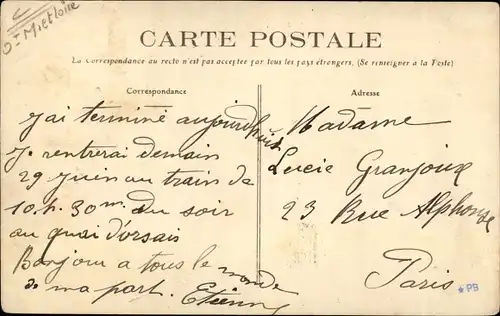 CARTE POSTALE
La Correspondance au recto n'est pas acceptée par tous les pays étrangers. (Se renseigner à la Poste)
Correspondance
Adresse
J'ai terminé aujourd'huit
Je rentrerai demain
29 juin au train de
10.h. 30m. du soir
au quai d'orsais
Bonjour a tous le monde
de ma part. Etienne
Madame
Lucie Granjoux
23 Rue Alphonse
Paris
PB